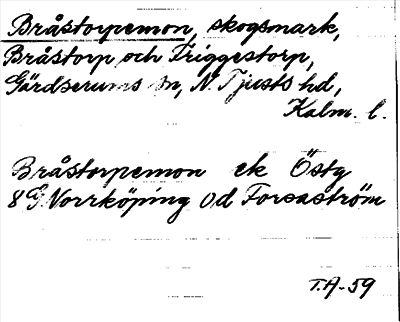 Bråstorpemon, skogsmark,
Bråstorp och Friggestorp,
Gärdserums sn, N. Tjusts hd,
Kalm. l.
Bråstorpemon ek Östg
8 G Norrköping Od Forsaström
T.A-59